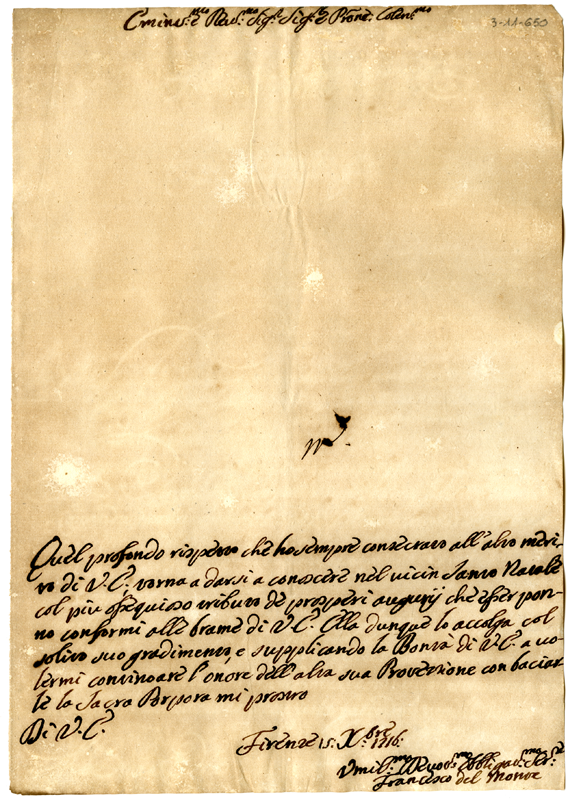 Emin:mo e Rev:mo Sig:r Sig:r e Prone: Colen:mo
3-11-650
Quel profondo rispetto che ho sempre consecrato all'alto meri-
to di V.E., torna a darsi a conoscere nel vicin Santo Natale
col più ossequioso tributo de prosperi augurij che esser pon-
no conformi alle brame di V.E. Ella dunque lo accolga col
solito suo gradimento, e supplicando la Bontà di V.E. a vo-
lermi continoare l'onore dell'alta sua Protezione con baciar-
le la Sacra Porpora mi protesto
Di V.E.
Firenze 15. Xbre 1716.
Vmil:mo Devot:mo Obbligat:mo Ser:re
Francesco del Monte